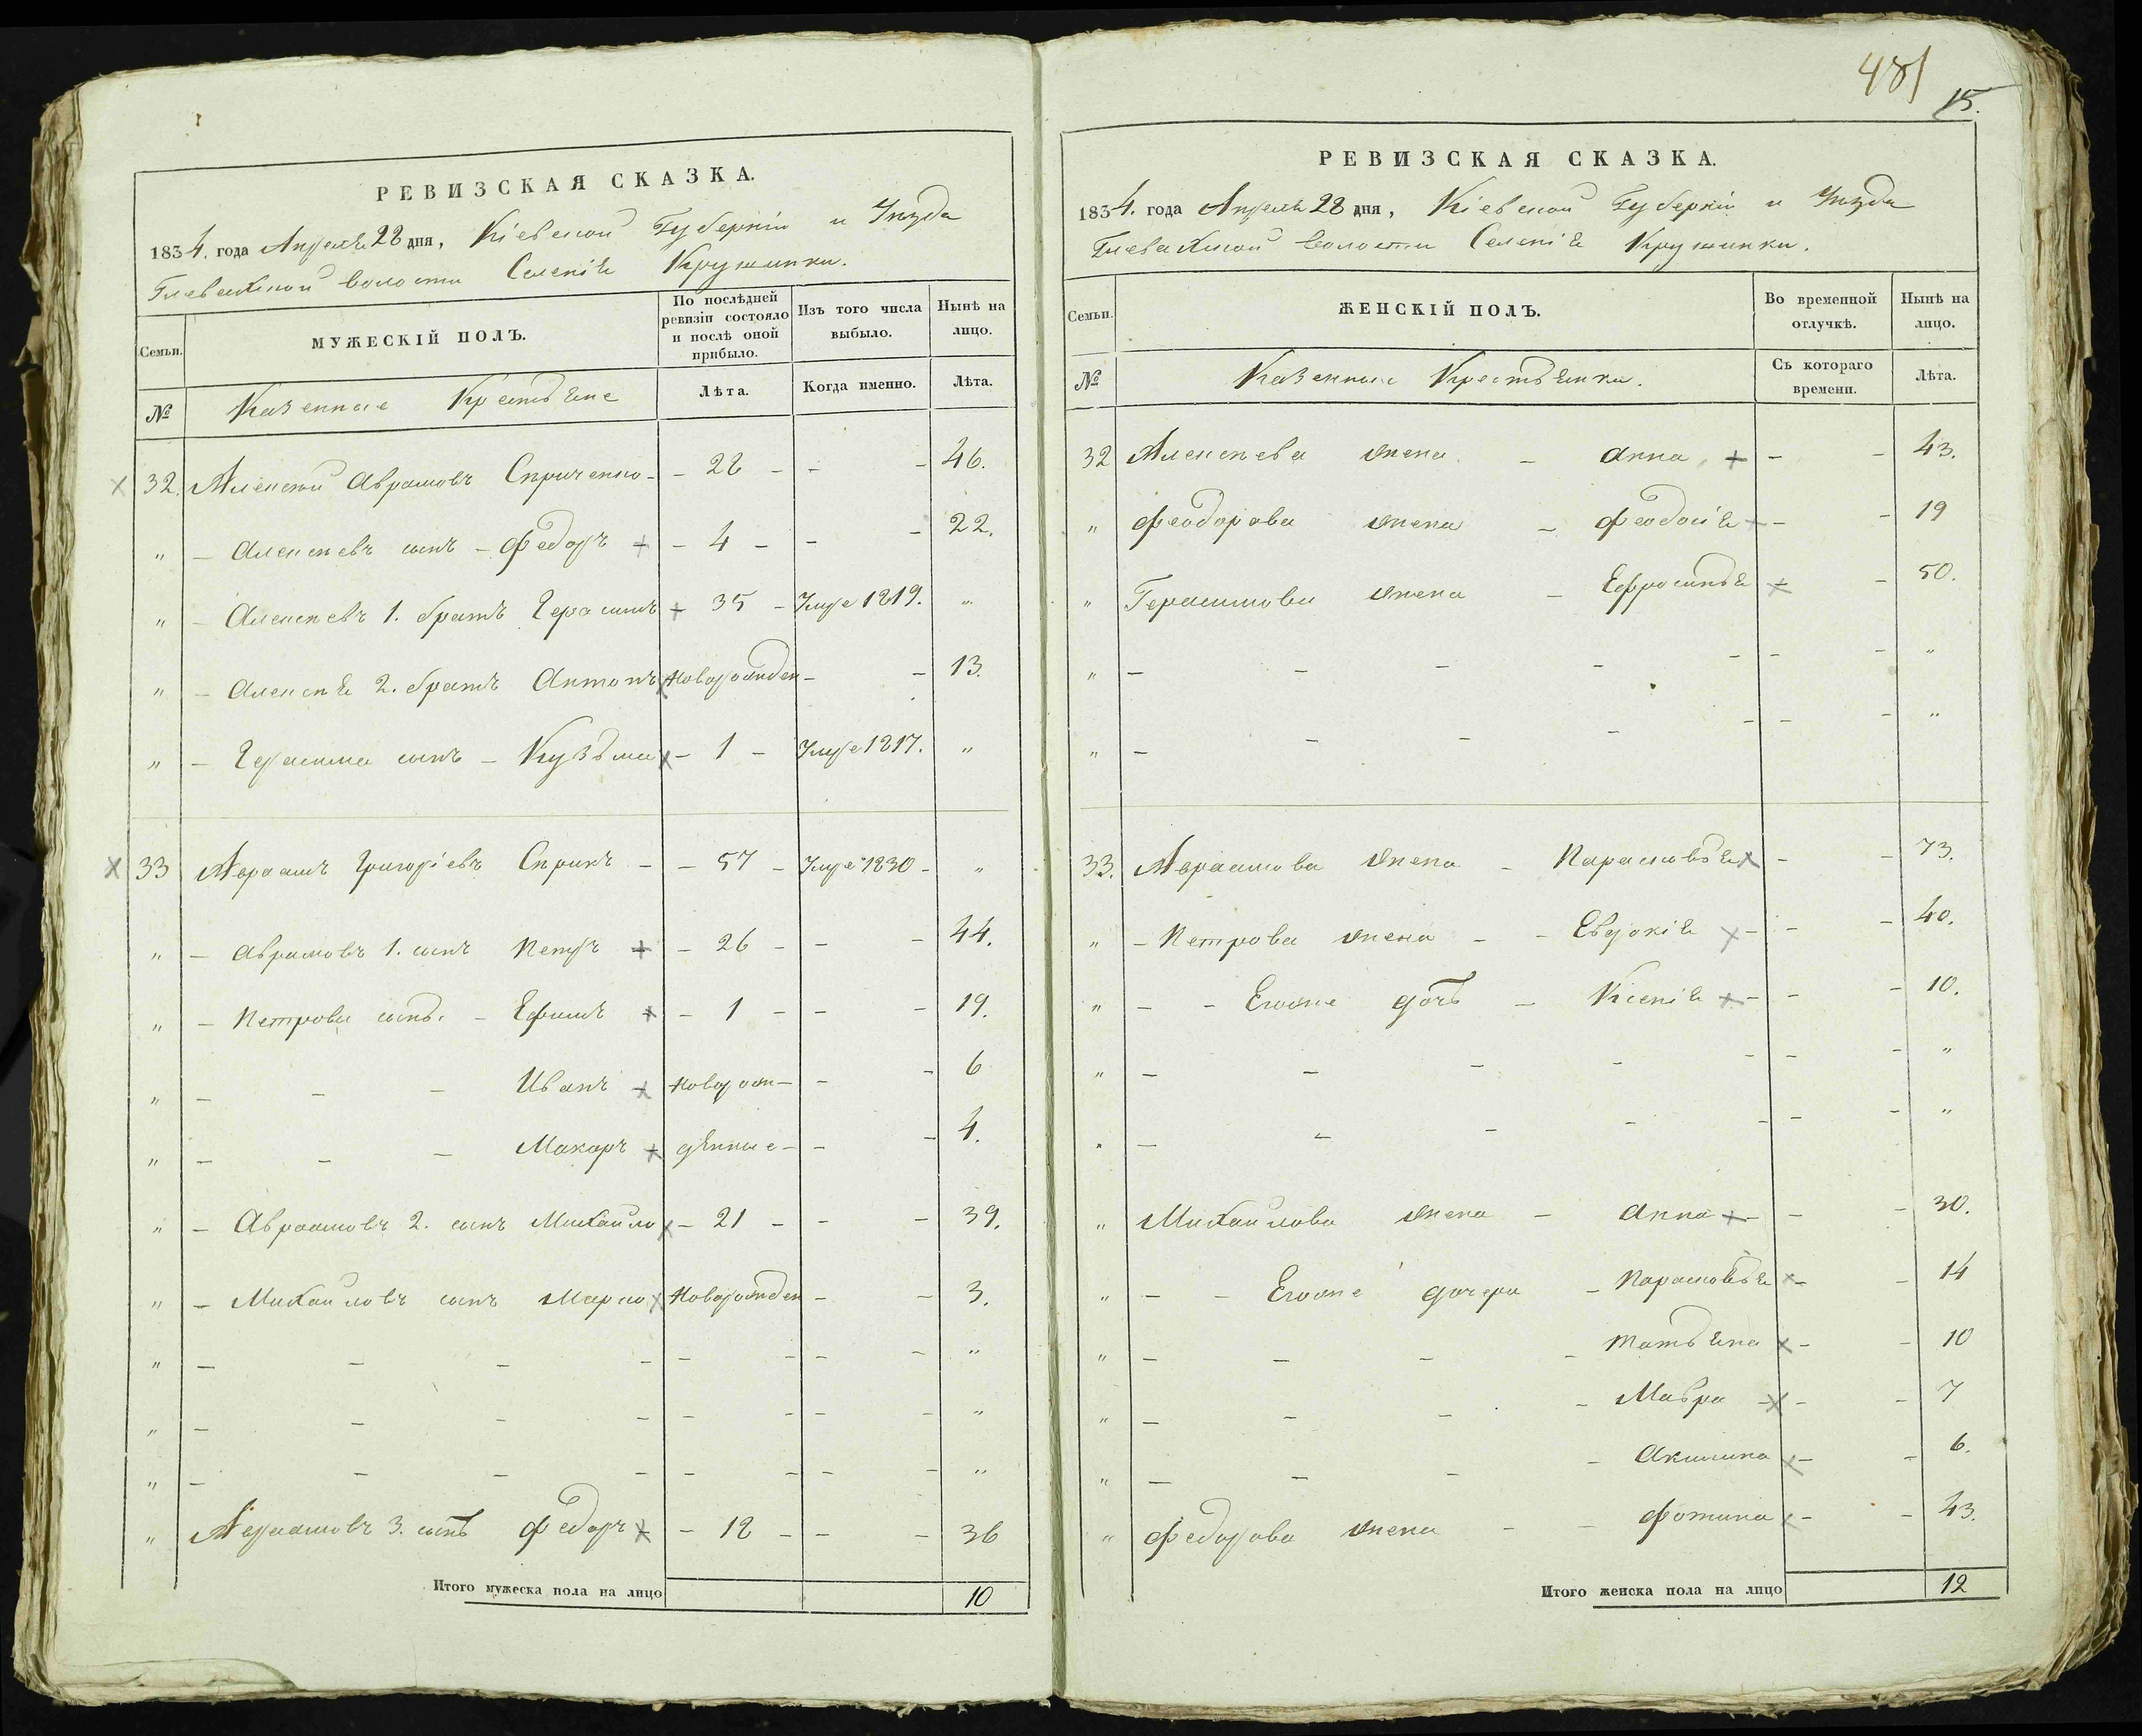 481
15.
РЕВИЗСКАЯ СКАЗКА.
1834. года Апреля 28 дня, Кіевской Губерніи и Уѣзда
Глевахской волости Селенія Крушинки.
Семьи. МУЖЕСКІЙ ПОЛЪ. По послѣдней ревизіи состояло и послѣ оной прибыло. Изъ того числа выбыло. Нынѣ на лицо.
№ Казенные Крестьяне Лѣта. Когда именно. Лѣта.
32. Алексей Аврамовъ Скриченко - - 28 - - - 46.
" - Алексеевъ сынъ - Федоръ - 4 - - - 22.
" - Алексеевъ 1. братъ Герасимъ - 35 - Умре 1819. "
" - Алексея 2. братъ Антонъ Новорожден - - 13.
" - Герасима сынъ - Кузьма - 1 - Умре 1817. "
33 Авраамъ Григоріевъ Скрикъ - - 57 - Умре 1830 - "
" - Аврамовъ 1. сынъ Петръ - 26 - - - 44.
" - Петрова сынъ. - Ефимъ - 1 - - - 19.
" - - - Иванъ Новорож- - - 6
" - - - Макаръ дѣнные - - - 4.
" - Авраамовъ 2. сынъ Михайло - 21 - - - 39.
" - Михайловъ сынъ Марко Новорожден - - 3.
" - - - - - - - - "
" - - - - - - - - "
" - - - - - - - - "
" Авраамовъ 3. сынъ Федоръ - 18 - - - 36
Итого мужеска пола на лицо 10
РЕВИЗСКАЯ СКАЗКА.
1834. года Апреля 28 дня, Кіевской Губерніи и Уѣзда
Глевахской волости Селенія Крушинки.
Семьи. ЖЕНСКІЙ ПОЛЪ. Во временной отлучкѣ. Нынѣ на лицо.
№ Казенные Крестьянки. Съ котораго времени. Лѣта.
32 Алексеева жена - Анна - - 43.
" Феодорова жена - Феодосія - - 19
" Герасимова жена - Ефросинья - 50.
" - - - - - - - "
" - - - - - - - "
33. Авраамова жена - Парасковья - - 73.
" - Петрова жена - - Евдокія - - - 40.
" - - Егоже дочь - Ксенія - - - 10.
" - - - - - - - "
" - - - - - - - "
" Михайлова жена - Анна - - - 30.
" - - Егоже дочери - Парасковья - - 14
" - - - - Татьяна - - 10
" - - - - Мавра - - - 7
" - - - - Акилина - - 6.
" Федорова жена - - Фотина - - 43.
Итого женска пола на лицо 12